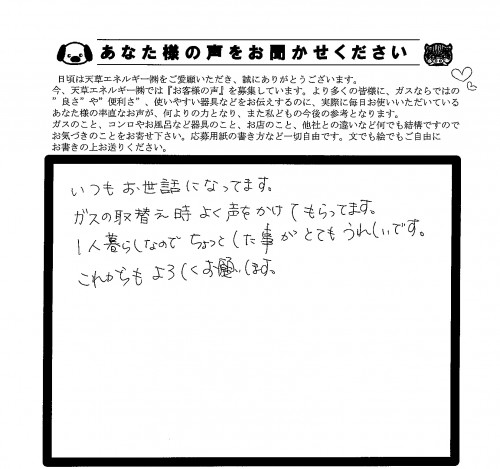 あなた様の声をお聞かせください
日頃は天草エネルギー㈱をご愛願いただき、誠にありがとうございます。
今、天草エネルギー㈱では『お客様の声』を募集しています。より多くの皆様に、ガスならではの
”良さ”や”便利さ”、使いやすい器具などをお伝えするのに、実際に毎日お使いいただいている
あなた様の率直なお声が、何よりの力となり、また私どもの今後の参考となります。
ガスのこと、コンロやお風呂など器具のこと、お店のこと、他社との違いなど何でも結構ですので
お気づきのことをお寄せ下さい。応募用紙の書き方など一切自由です。文でも絵でもご自由に
お書きの上お送りください。
いつもお世話になってます。
ガスの取替え時よく声をかけてもらってます。
1人暮らしなのでちょっとした事がとてもうれしいです。
これからもよろしくお願いします。